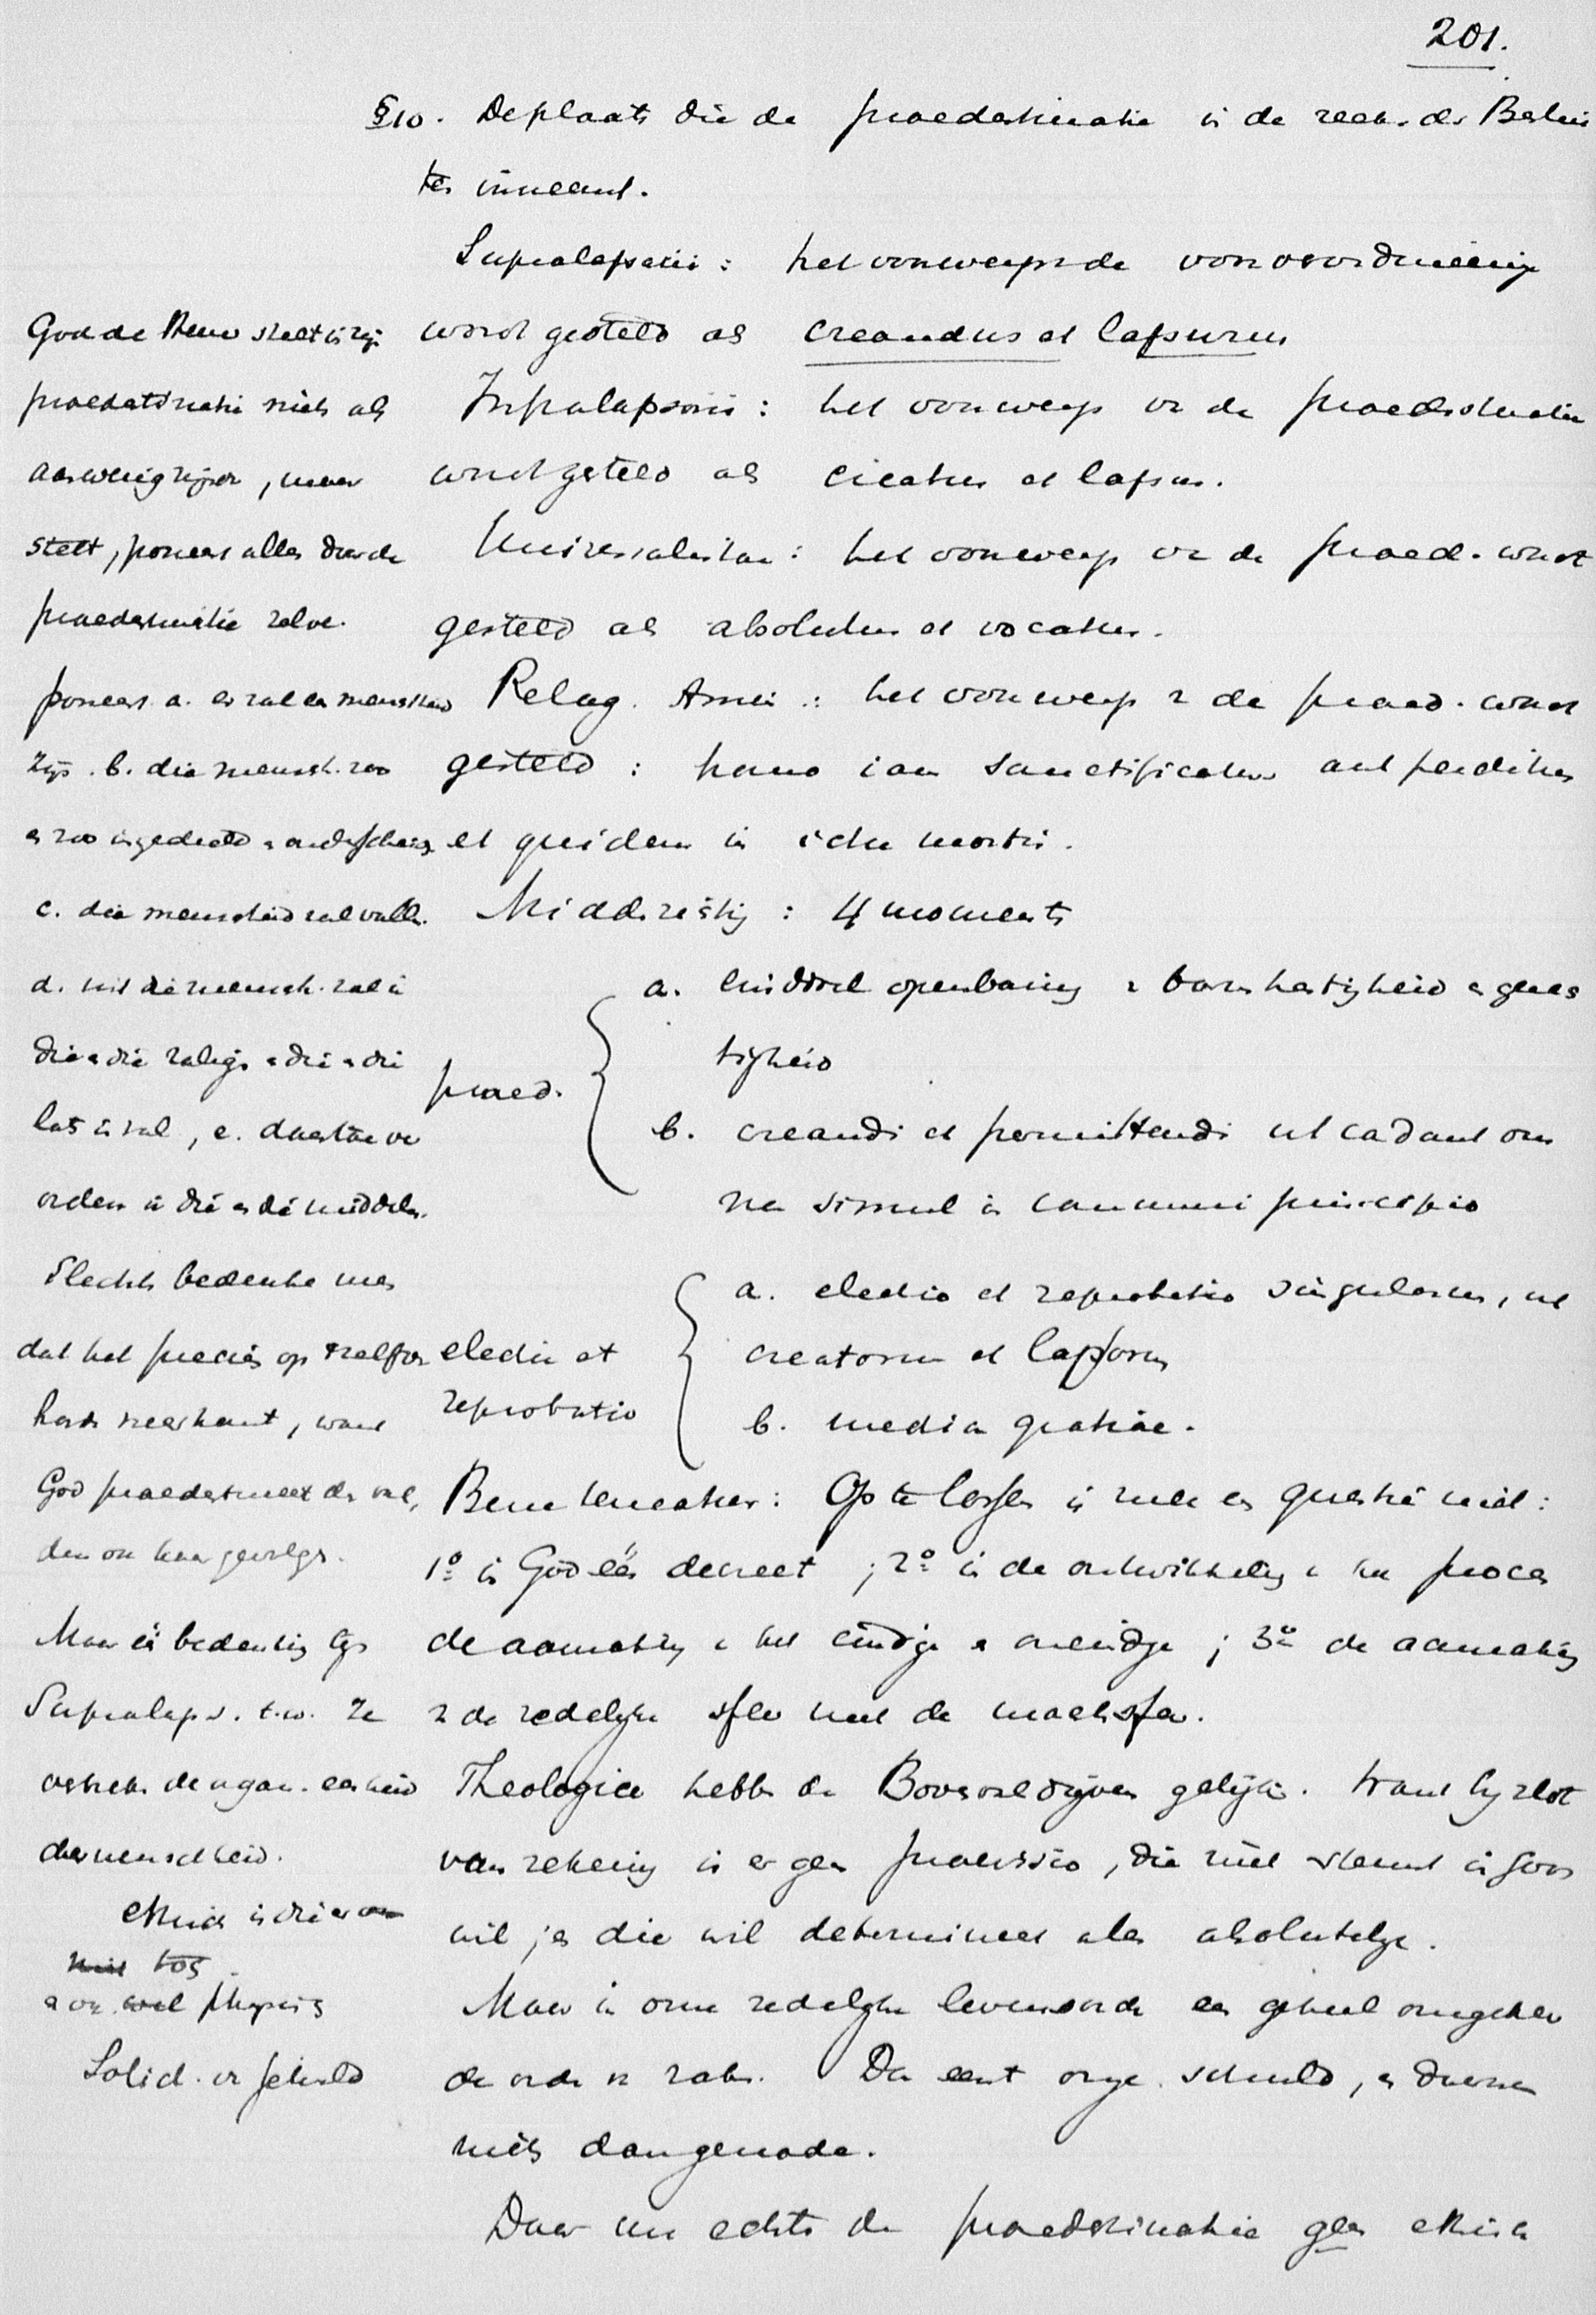 201.
§10. De plaats die de praedestinatie in de reeks der Beslui
ten inneemt.
Supralapsarii: het voorwerp der voorverordineering
wordt gesteld als creandus et lapsurus
Infralapsarii: het voorwerp vn de praedestinatie
wordt gesteld als creatus et lapsus.
Universalisten: het voorwerp vn de praed. wordt
gesteld als absolutus et vocatus.
Pelag. Armin.: het voorwerp v de praed. wordt
gesteld: homo iam sanctificatus aut perditus
et quidem in ictu mortis.
Midd. : 4 momenten
praed.
a. openbaring v barmhartigheid en gerech
tigheid
b. creandi et permittendi ut cadant om
nes simul in communi principio
electio et
reprobatio
a. electio et reprobatio singulorum, ut
creatorum et lapsorum
b. media gratiae.
Op te lossen is deze questie niet:
1º is God één decreet ; 2º is de ontwikkeling een proces
de aanraking v het eindige en oneindige ; 3º de aanraking
v de redelijke sfeer met de
Theologice hebben de Bovenvaldrijvers gelijk. Want bij slot
van rekening is er geen , die niet steunt in Gods
wil ; en die wil determineert alles absolutelijk.
Maar in onze redelijke levensorde een geheel omgekeer
de orde v zaken. Daar eerst onze schuld, en daarna
niets dan genade.
Daar nu echter de praedestinatie geen ethisch
God de Heer stelt in zijn
praedestinatie niets als
aanwezig zijnde, maar
stelt, poneert alles door de
praedestinatie zelve.
poneert a. er zal een menschheid
zijn. b. die mensch. zoo
en zoo ingedeeld en onderscheiden
c. die menschheid zal vallen.
d. uit die mensch. zal ik
die en die zaligen en die en die
laten in val, e. daartoe ver
orden ik die en die middelen.
Slechts bedenke men
dat het precies op 't zelfde
neerkomt, want
God praedestineert den val,
den
Maar één bedenking tgn
Supralaps. t.w. ze
de organ. eenheid
der menschheid.
ethisch is die
tos
physis
Solid. vn schuld